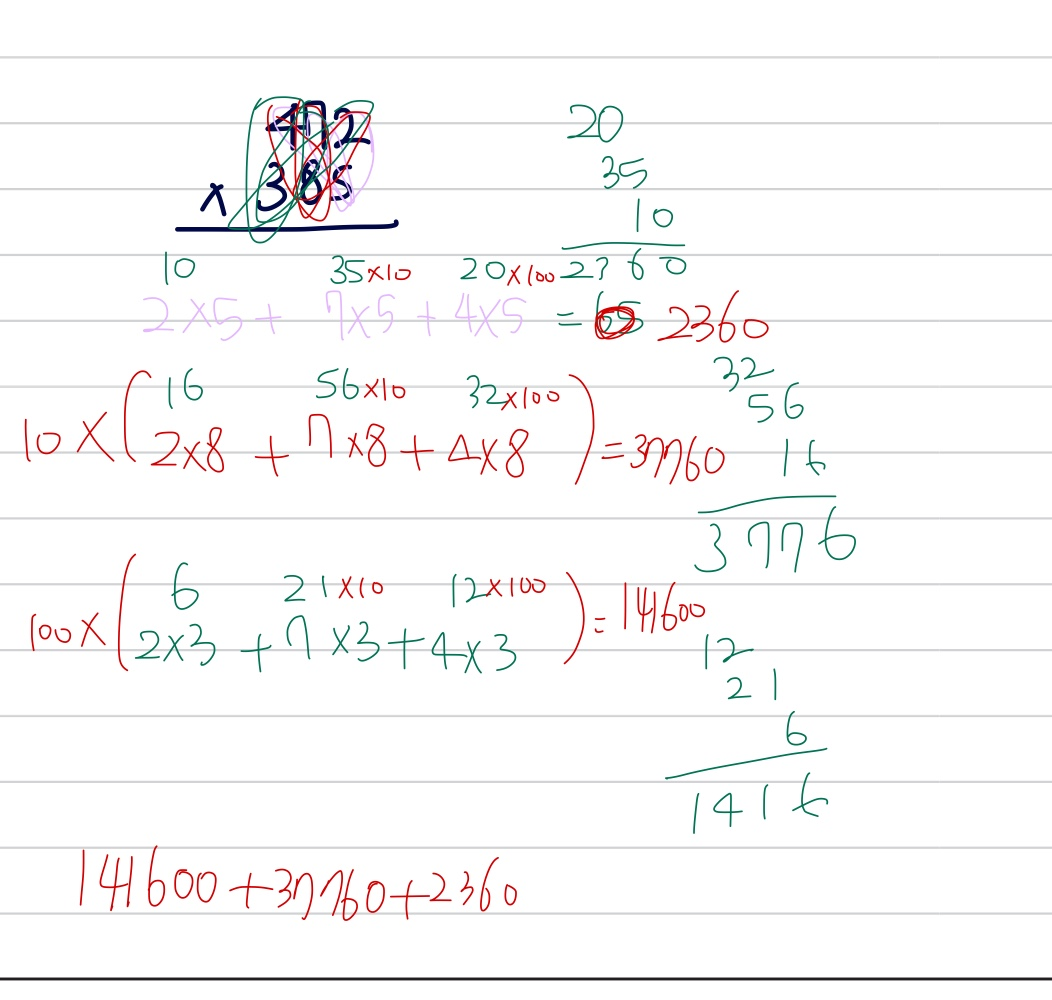 472
× 385
20
35
10
2360
10 35×10 20×100
2×5 + 7×5 + 4×5 = 2360
16 56×10 32×100
10×(2×8 + 7×8 + 4×8) = 37760
32
56
16
3776
6 21×10 12×100
100×(2×3 + 7×3 + 4×3) = 141600
12
21
6
1416
141600+37760+2360